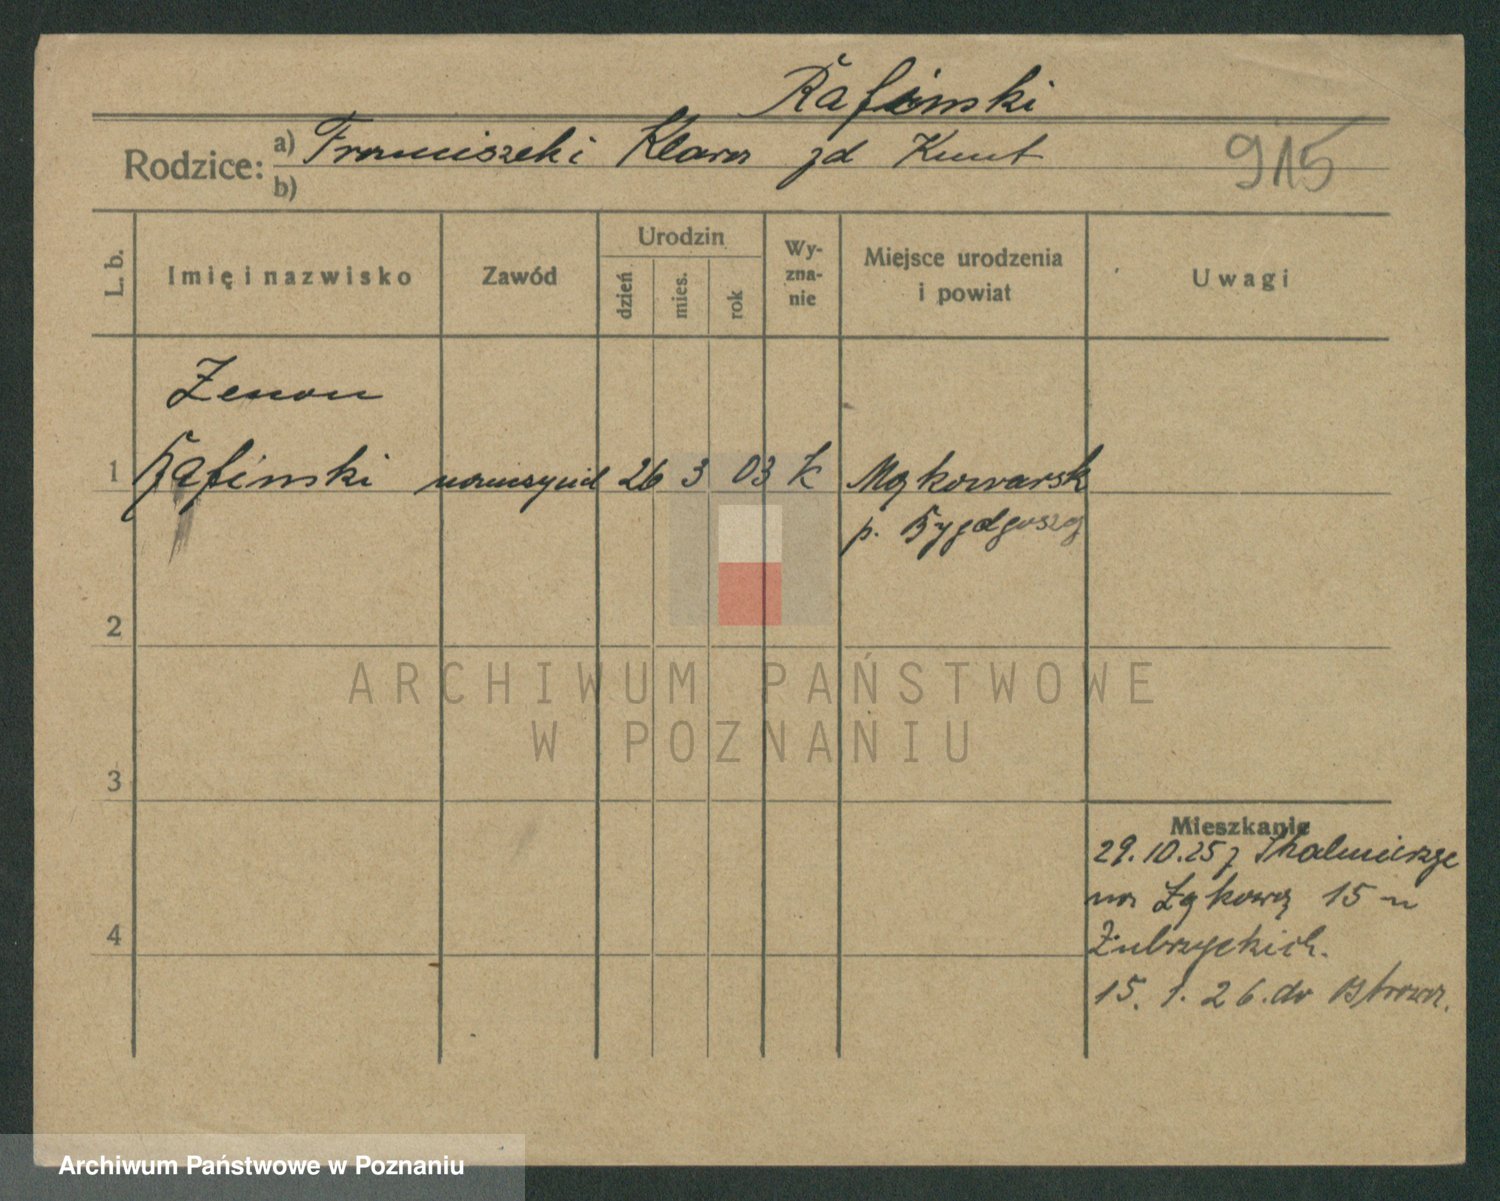 Rafinski
Rodzice: a) Franciszek i Klara zd Knut
b)
915
L. b.
Imię i nazwisko
Zawód
Urodzin
dzień
mies.
rok
Wy-
zna-
nie
Miejsce urodzenia
i powiat
Uwagi
Zenon
1 Rafinski 26 3 03 K Mąkowarsk
p. Bydgoszcz
2
3
4
Mieszkanie
29.10.25 z Skalmierzyc
na Łąkową 15 u
Zubrzyckich.
15. 1. 26. do Ostrowa.
ARCHIWUM PAŃSTWOWE
W POZNANIU
Archiwum Państwowe w Poznaniu